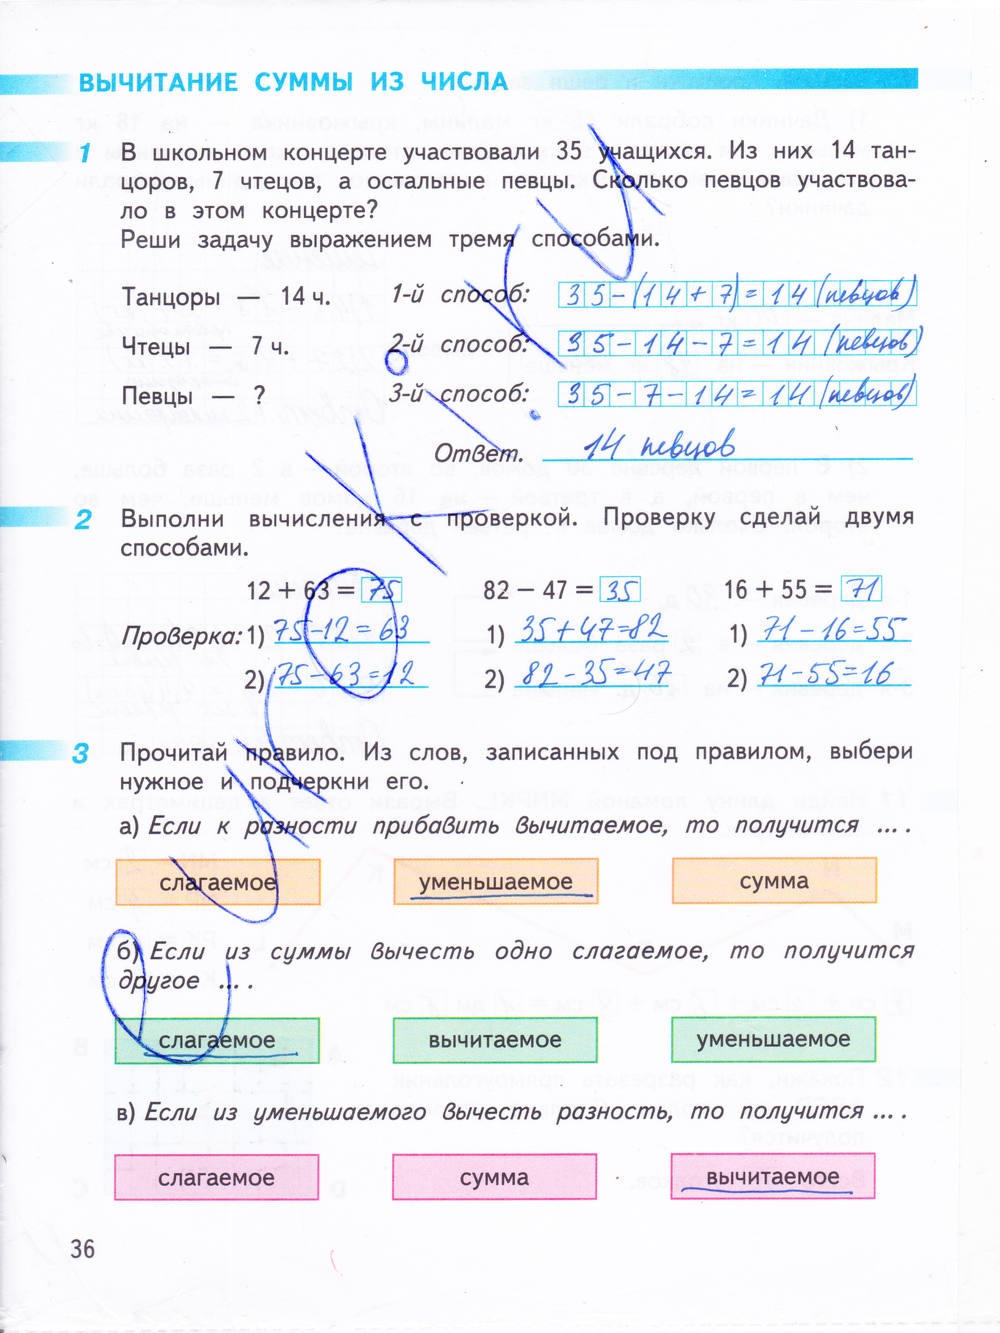 ВЫЧИТАНИЕ СУММЫ ИЗ ЧИСЛА
1 В школьном концерте участвовали 35 учащихся. Из них 14 тан-
цоров, 7 чтецов, а остальные певцы. Сколько певцов участвова-
ло в этом концерте?
Реши задачу выражением тремя способами.
Танцоры — 14 ч. 1-й способ: 35-(14+7)=14 (певцов)
Чтецы — 7 ч. 2-й способ: 35-14-7=14 (певцов)
Певцы — ? 3-й способ: 35-7-14=14 (певцов)
Ответ. 14 певцов
2 Выполни вычисления с проверкой. Проверку сделай двумя
способами.
12 + 63 = 75 82 − 47 = 35 16 + 55 = 71
Проверка: 1) 75-12=63 1) 35+47=82 1) 71-16=55
2) 75-63=12 2) 82-35=47 2) 71-55=16
3 Прочитай правило. Из слов, записанных под правилом, выбери
нужное и подчеркни его.
а) Если к разности прибавить вычитаемое, то получится ... .
слагаемое уменьшаемое сумма
б) Если из суммы вычесть одно слагаемое, то получится
другое ... .
слагаемое вычитаемое уменьшаемое
в) Если из уменьшаемого вычесть разность, то получится ... .
слагаемое сумма вычитаемое
36